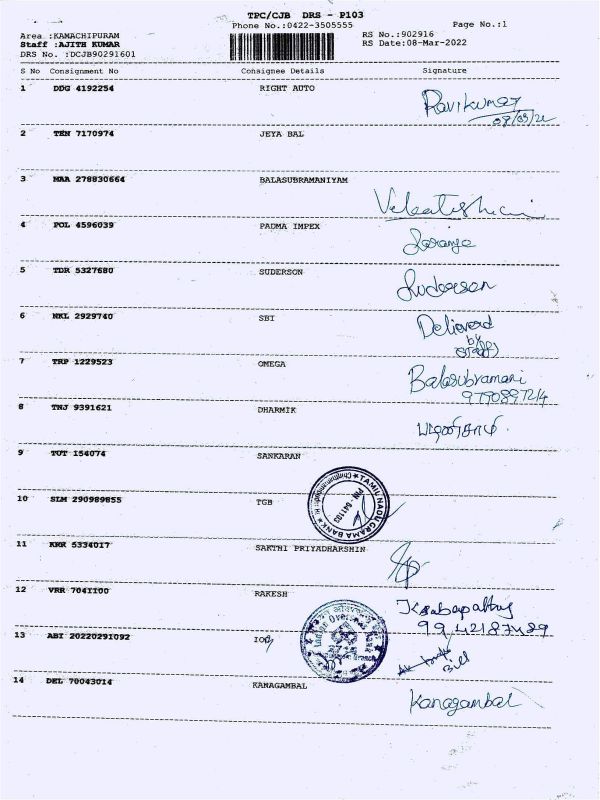 TPC/CJB DRS - P103
Phone No.:0422-3505555
Page No.:1
Area :KAMACHIPURAM
RS No.:902916
Staff :AJITH KUMAR
RS Date:08-Mar-2022
DRS No. :DCJB90291601
S No Consignment No Consignee Details Signature
1 DDG 4192254 RIGHT AUTO
Ravikumar
08/03/22
2 TEN 7170974 JEYA BAL
3 MAA 278830664 BALASUBRAMANIYAM
4 POL 4596039 PADMA IMPEX
5 TDR 5327680 SUDERSON
Suderson
6 NKL 2929740 SBI
Delivered
by
7 TRP 1229523 OMEGA
Balasubramani
9790897214
8 TNJ 9391621 DHARMIK
9 TOT 154074 SANKARAN
10 SLM 290989855 TGB
TAMIL NADU GRAMA BANK
PIN - 641103
11 KRR 5334017 SAKTHI PRIYADHARSHIN
12 VRR 7041100 RAKESH
9942187489
13 ABI 20220291092 IOB
Indian Overseas Bank
14 DEL 70043014 KANAGAMBAL
Kanagambal